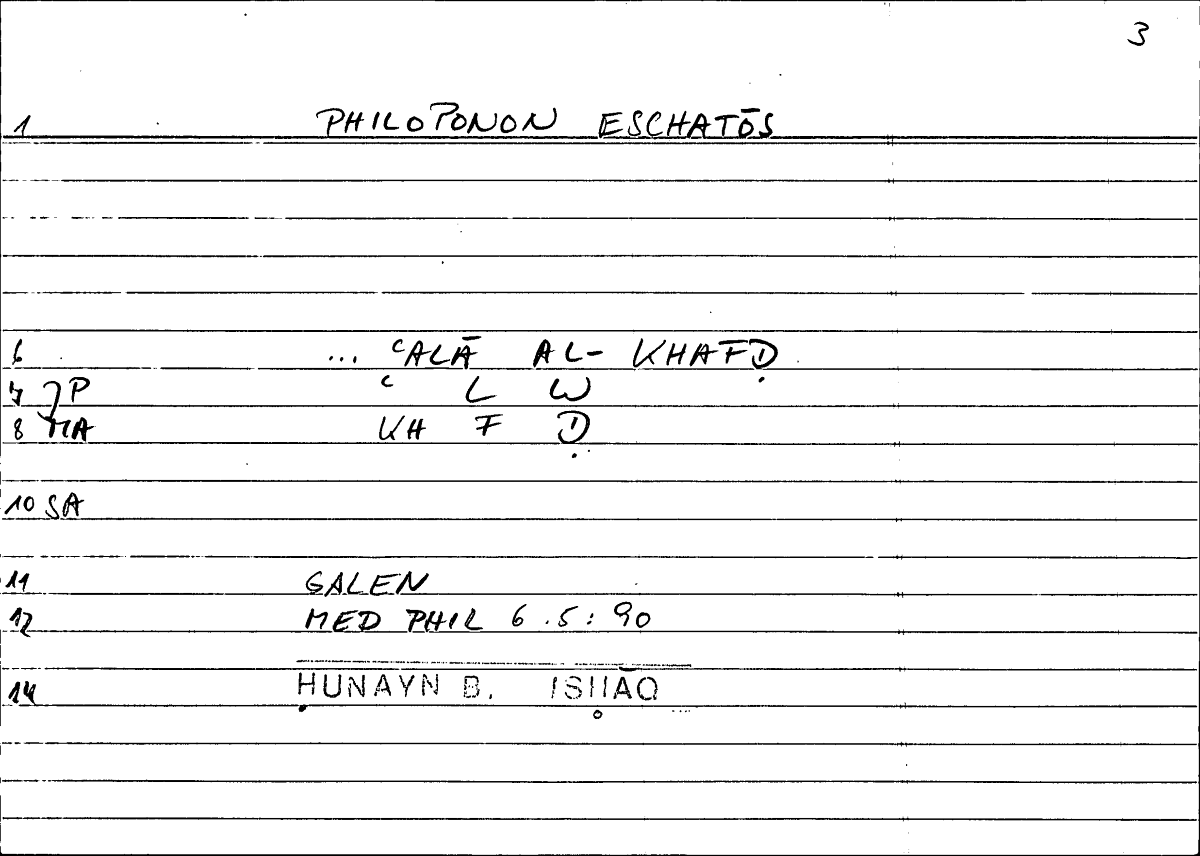 3
1 PHILOPONON ESCHATŌS
6 ... ʿALĀ AL-KHAFḌ
7 P ʿ L W
8 MA KH F Ḍ
10 SA
11 GALEN
12 MED PHIL 6.5:90
14 ḤUNAYN B. ISḤĀQ